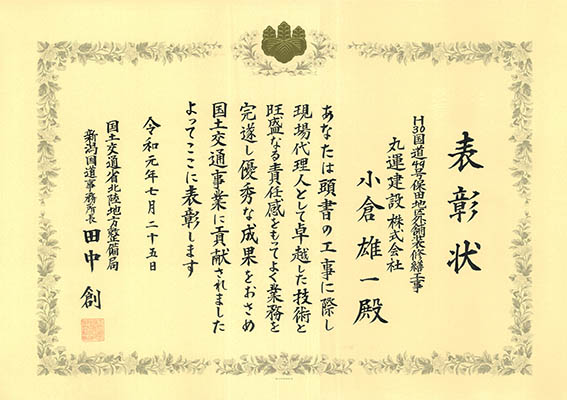 表彰状
H30国道49号保田地区外舗装修繕工事
丸運建設株式会社
小倉雄一殿
あなたは頭書の工事に際し
現場代理人として卓越した技術と
旺盛なる責任感をもってよく業務を
完遂し優秀な成果をおさめ
国土交通事業に貢献されました
よってここに表彰します
令和元年七月二十五日
国土交通省北陸地方整備局
新潟国道事務所長 田中創